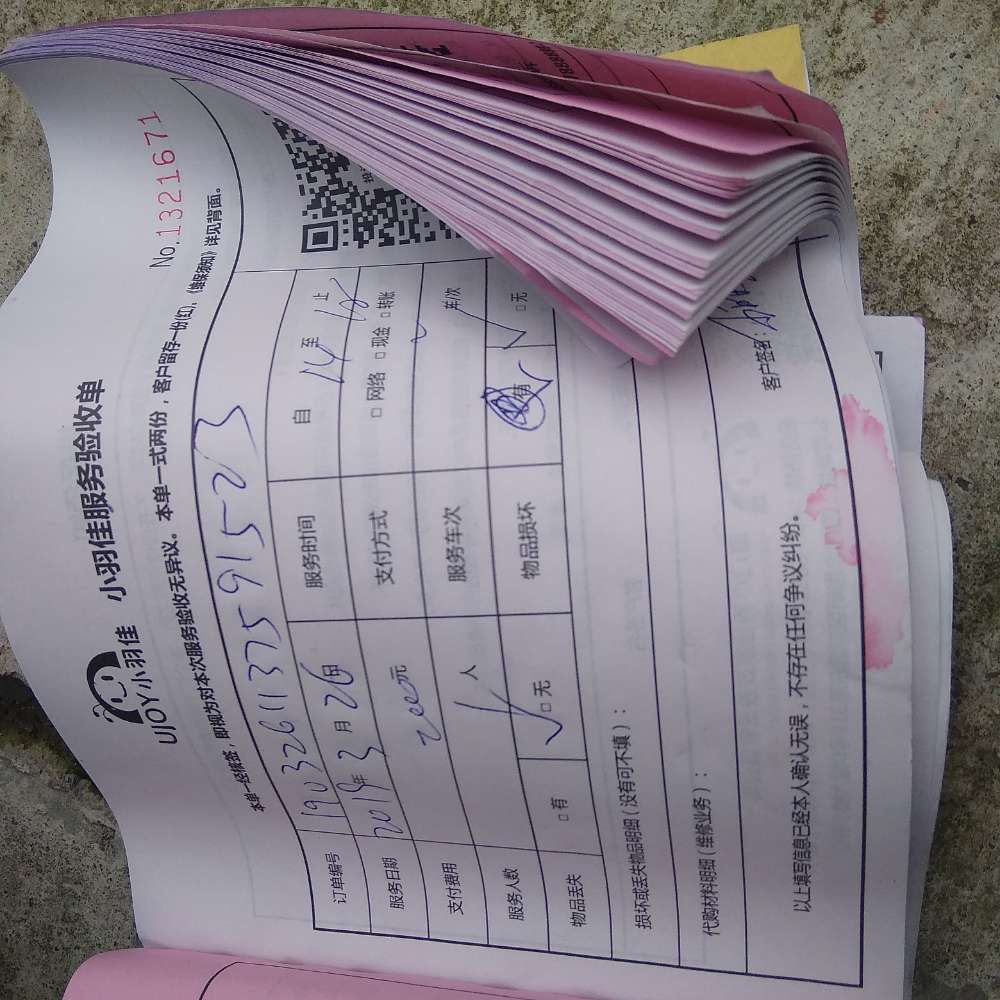 UJOY小羽佳 小羽佳服务验收单
No.1321671
本单一经核签，即视为对本次服务验收无异议。本单一式两份，客户留存一份(红)，《维保须知》详见背面。
订单编号 190326113759152 3
服务日期 2019年3月26日 服务时间 自 14 至 18 止
支付费用 200元 支付方式 □ 网络 □ 现金 □ 转账
服务人数 1 人 服务车次 车/次
物品丢失 □ 有 □ 无 物品损坏 有 □ 无
损坏或丢失物品明细（没有可不填）：
代购材料明细（维修业务）：
以上填写信息已经本人确认无误，不存在任何争议纠纷。
客户签名：